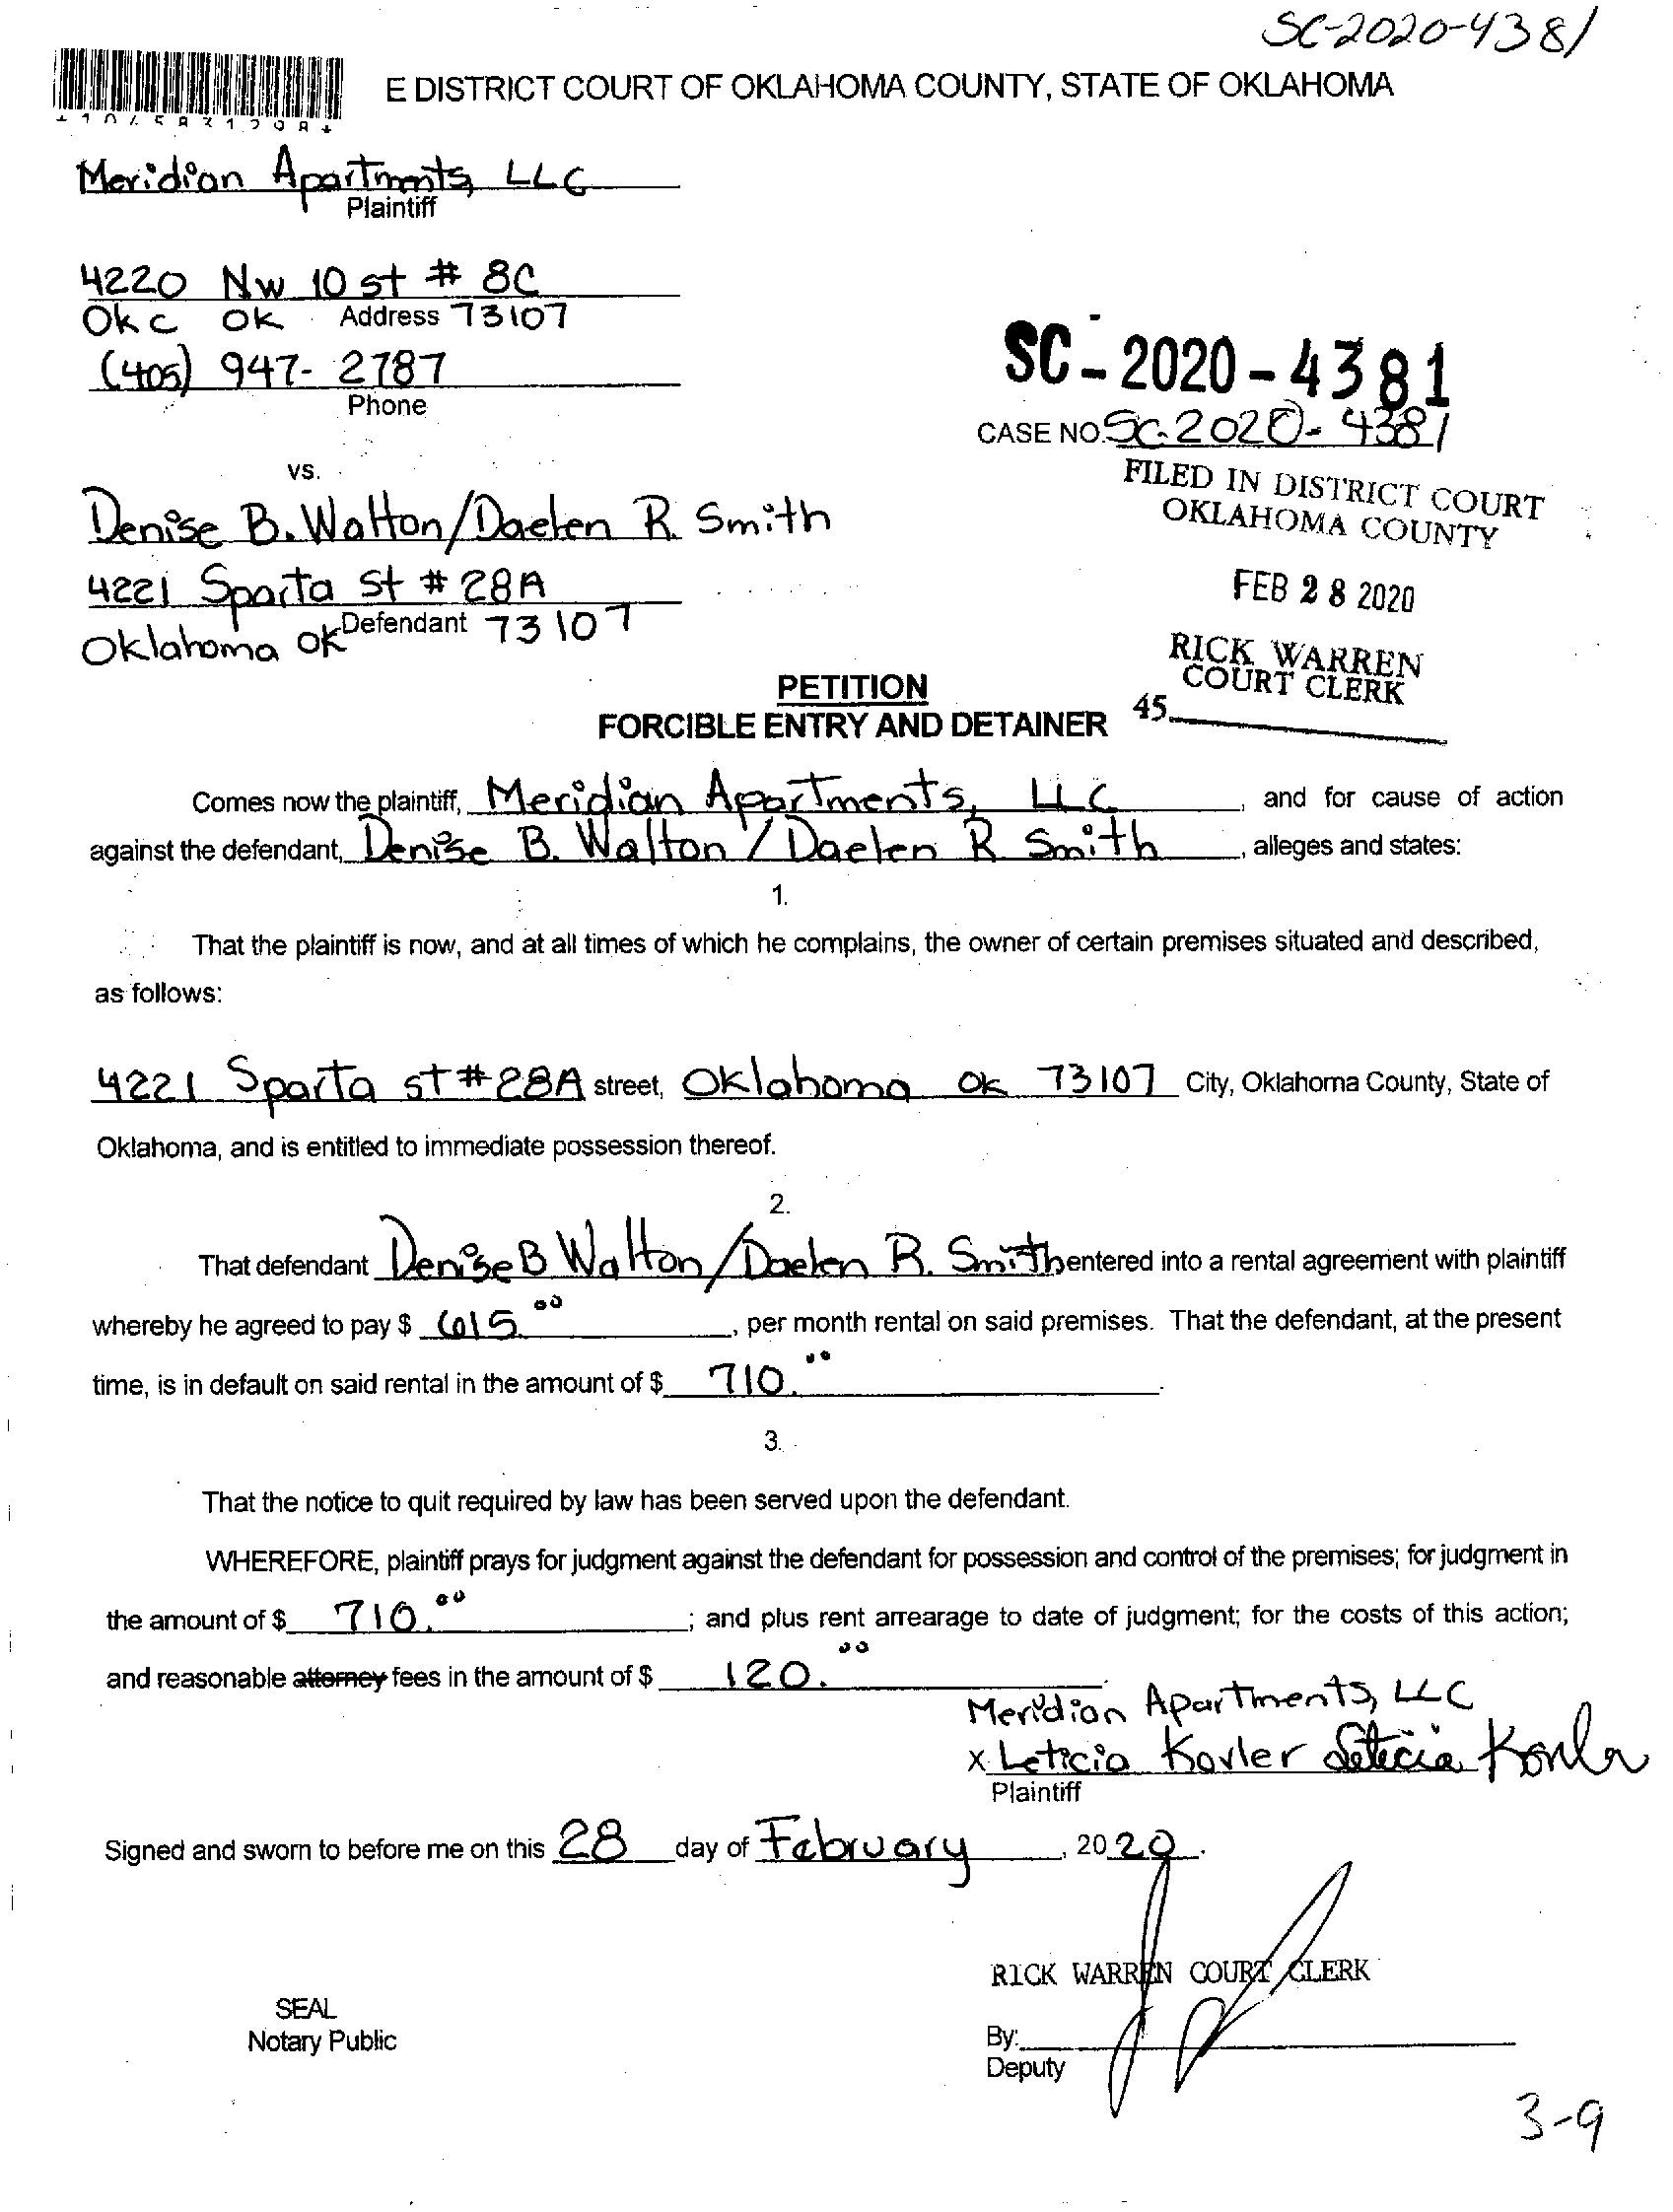 SC-2020-4381
E DISTRICT COURT OF OKLAHOMA COUNTY, STATE OF OKLAHOMA
Meridian Apartments, LLC
Plaintiff
4220 NW 10 st # 8C
Okc OK Address 73107
(405) 947-2787
Phone
SC-2020-4381
CASE NO. SC-2020-4381
vs.
FILED IN DISTRICT COURT
OKLAHOMA COUNTY
Denise B. Walton/Daelen R. Smith
4221 Sparta St # 28A
Defendant
Oklahoma OK 73107
FEB 28 2020
RICK WARREN
COURT CLERK
45
PETITION
FORCIBLE ENTRY AND DETAINER
Comes now the plaintiff, Meridian Apartments, LLC, and for cause of action
against the defendant, Denise B. Walton / Daelen R Smith, alleges and states:
1.
That the plaintiff is now, and at all times of which he complains, the owner of certain premises situated and described,
as follows:
4221 Sparta st # 28A street, Oklahoma OK 73107 City, Oklahoma County, State of
Oklahoma, and is entitled to immediate possession thereof.
2.
That defendant Denise B Walton/Daelen R. Smith entered into a rental agreement with plaintiff
whereby he agreed to pay $ 615.00, per month rental on said premises. That the defendant, at the present
time, is in default on said rental in the amount of $ 710.00.
3.
That the notice to quit required by law has been served upon the defendant.
WHEREFORE, plaintiff prays for judgment against the defendant for possession and control of the premises; for judgment in
the amount of $ 710.00; and plus rent arrearage to date of judgment; for the costs of this action;
and reasonable attorney fees in the amount of $ 120.00.
Meridian Apartments, LLC
x Leticia Kovler Leticia Kovler
Plaintiff
Signed and sworn to before me on this 28 day of February, 2020.
RICK WARREN COURT CLERK
SEAL
Notary Public
By:
Deputy
3-9